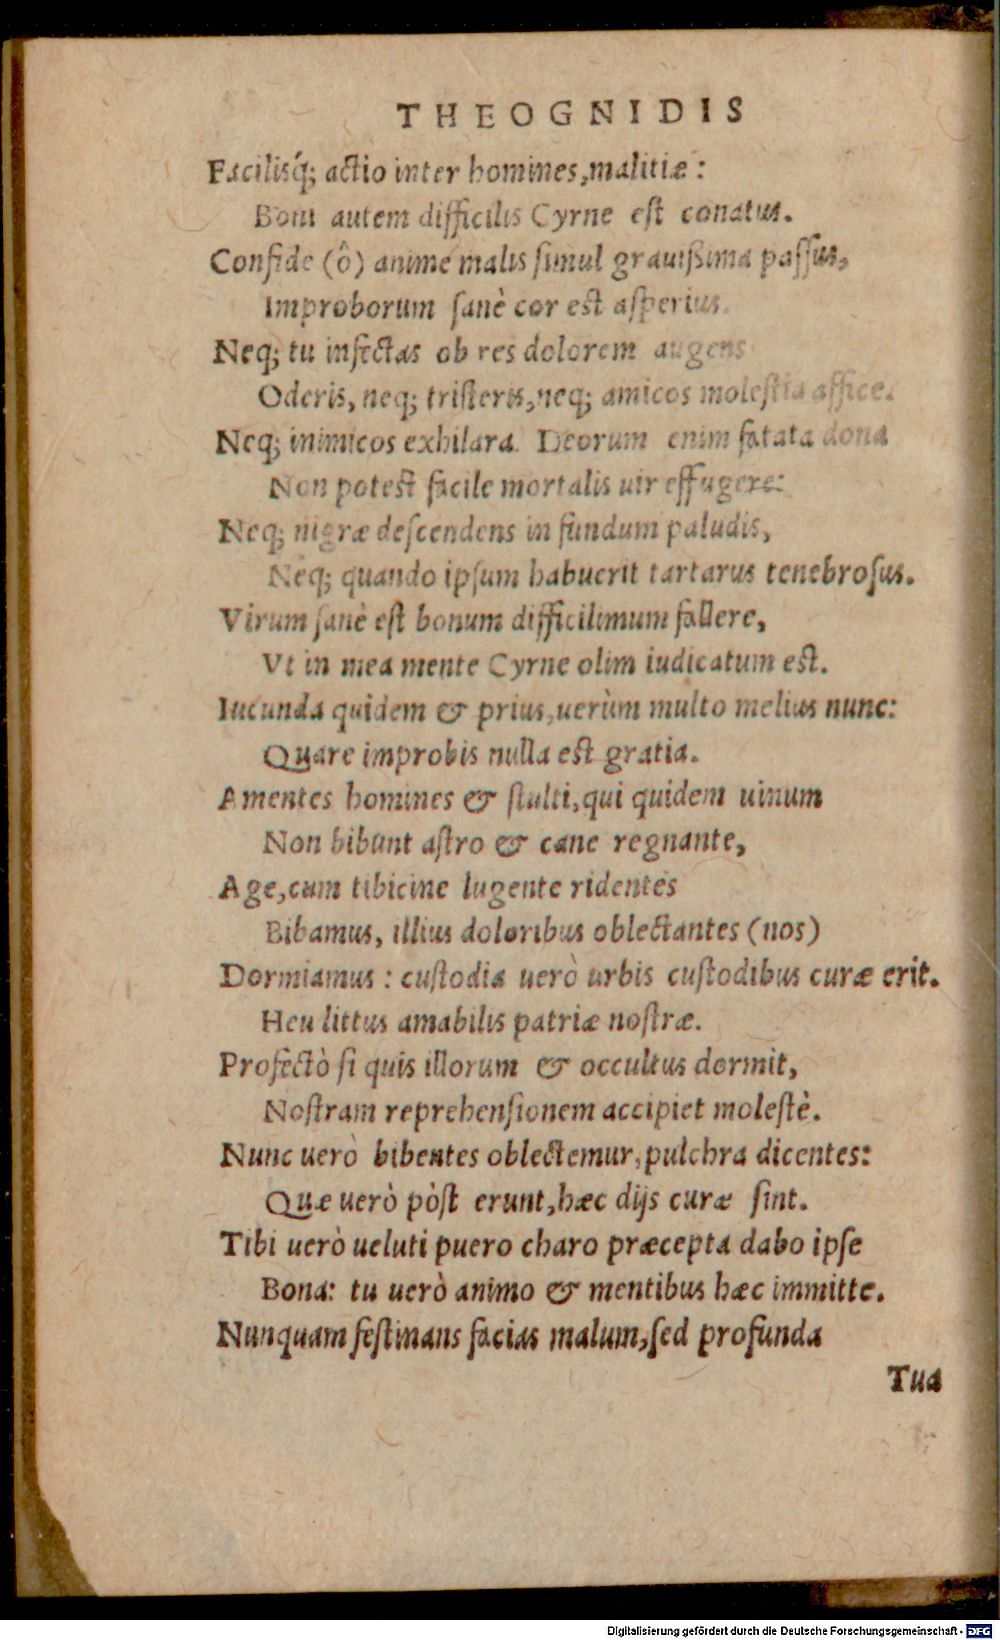 THEOGNIDIS
Facilisq́; actio inter homines, malitiæ :
Boni autem difficilis Cyrne est conatus.
Confide (ô) anime malis simul grauißima passus,
Improborum sanè cor est asperius.
Neq; tu infectas ob res dolorem augens
Oderis, neq; tristeris, neq; amicos molestia affice.
Neq; inimicos exhilara. Deorum enim fatata dona
Non potest facile mortalis uir effugere:
Neq; nigræ descendens in fundum paludis,
Neq; quando ipsum habuerit tartarus tenebrosus.
Virum sanè est bonum difficilimum fallere,
Vt in mea mente Cyrne olim iudicatum est.
Iucunda quidem & prius, uerùm multo melius nunc:
Quare improbis nulla est gratia.
Amentes homines & stulti, qui quidem uinum
Non bibunt astro & cane regnante,
Age, cum tibicine lugente ridentes
Bibamus, illius doloribus oblectantes (nos)
Dormiamus : custodia uerò urbis custodibus curæ erit.
Heu littus amabilis patriæ nostræ.
Profectò si quis illorum & occultus dormit,
Nostram reprehensionem accipiet molestè.
Nunc uerò bibentes oblectemur, pulchra dicentes:
Quæ uerò pòst erunt, hæc dijs curæ sint.
Tibi uerò ueluti puero charo præcepta dabo ipse
Bona: tu uerò animo & mentibus hæc immitte.
Nunquam festinans facias malum, sed profunda
Tua
Digitalisierung gefördert durch die Deutsche Forschungsgemeinschaft - DFG